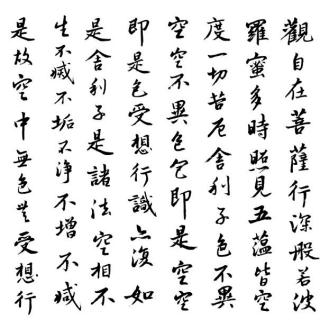 觀自在菩薩行深般若波
羅蜜多時照見五蘊皆空
度一切苦厄舍利子色不異
空空不異色色即是空空
即是色受想行識亦復如
是舍利子是諸法空相不
生不滅不垢不淨不增不減
是故空中無色無受想行